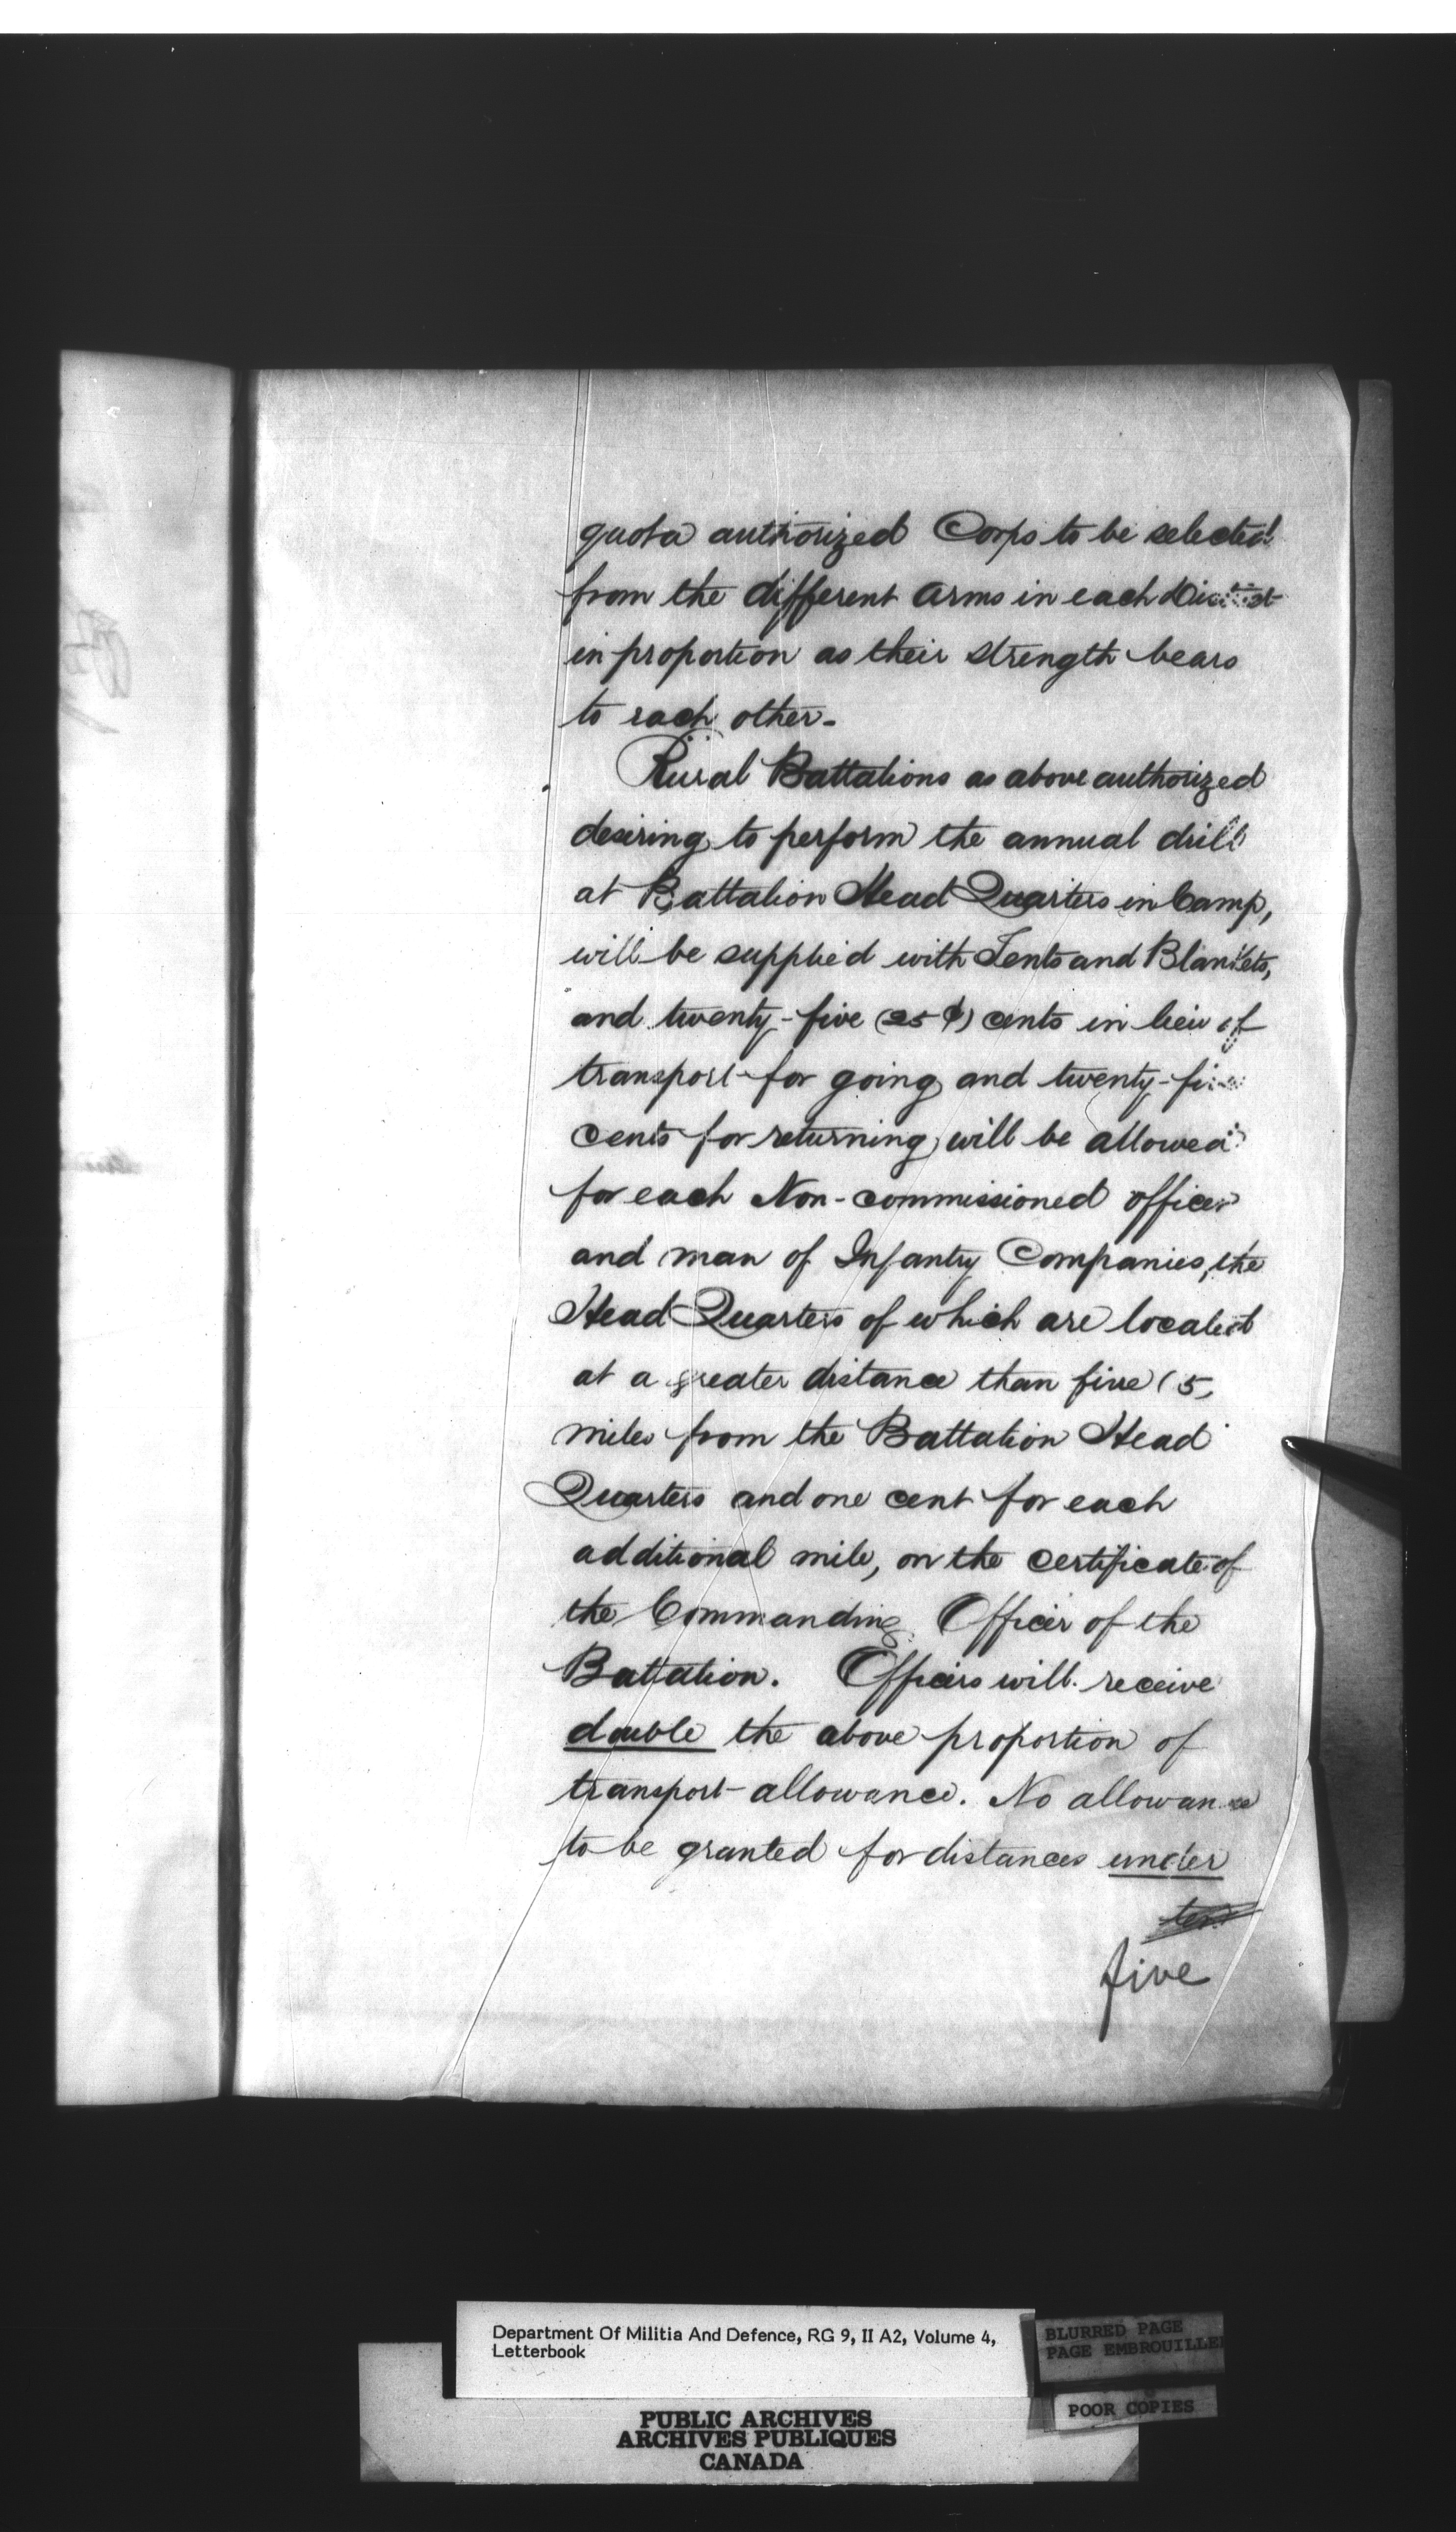 quota authorized Corps to be selected
from the different arms in each District
in proportion as their strength bears
to each other-
Rural Battalions as above authorized
desiring to perform the annual drill
at Battalion Head Quarters in Camp,
will be supplied with Tents and Blankets,
and twenty-five (25 ¢) cents in lieu of
transport for going and twenty-five
cents for returning will be allowed
for each Non-commissioned officer
and man of Infantry Companies, the
Head Quarters of which are located
at a greater distance than five (5)
miles from the Battalion Head
Quarters and one cent for each
additional mile, on the certificate of
the Commanding Officer of the
Battalion. Officers will receive
double the above proportion of
transport allowance. No allowance
to be granted for distances under
ten
five
Department Of Militia And Defence, RG 9, II A2, Volume 4,
Letterbook
BLURRED PAGE
PAGE EMBROUILLEE
POOR COPIES
PUBLIC ARCHIVES
ARCHIVES PUBLIQUES
CANADA